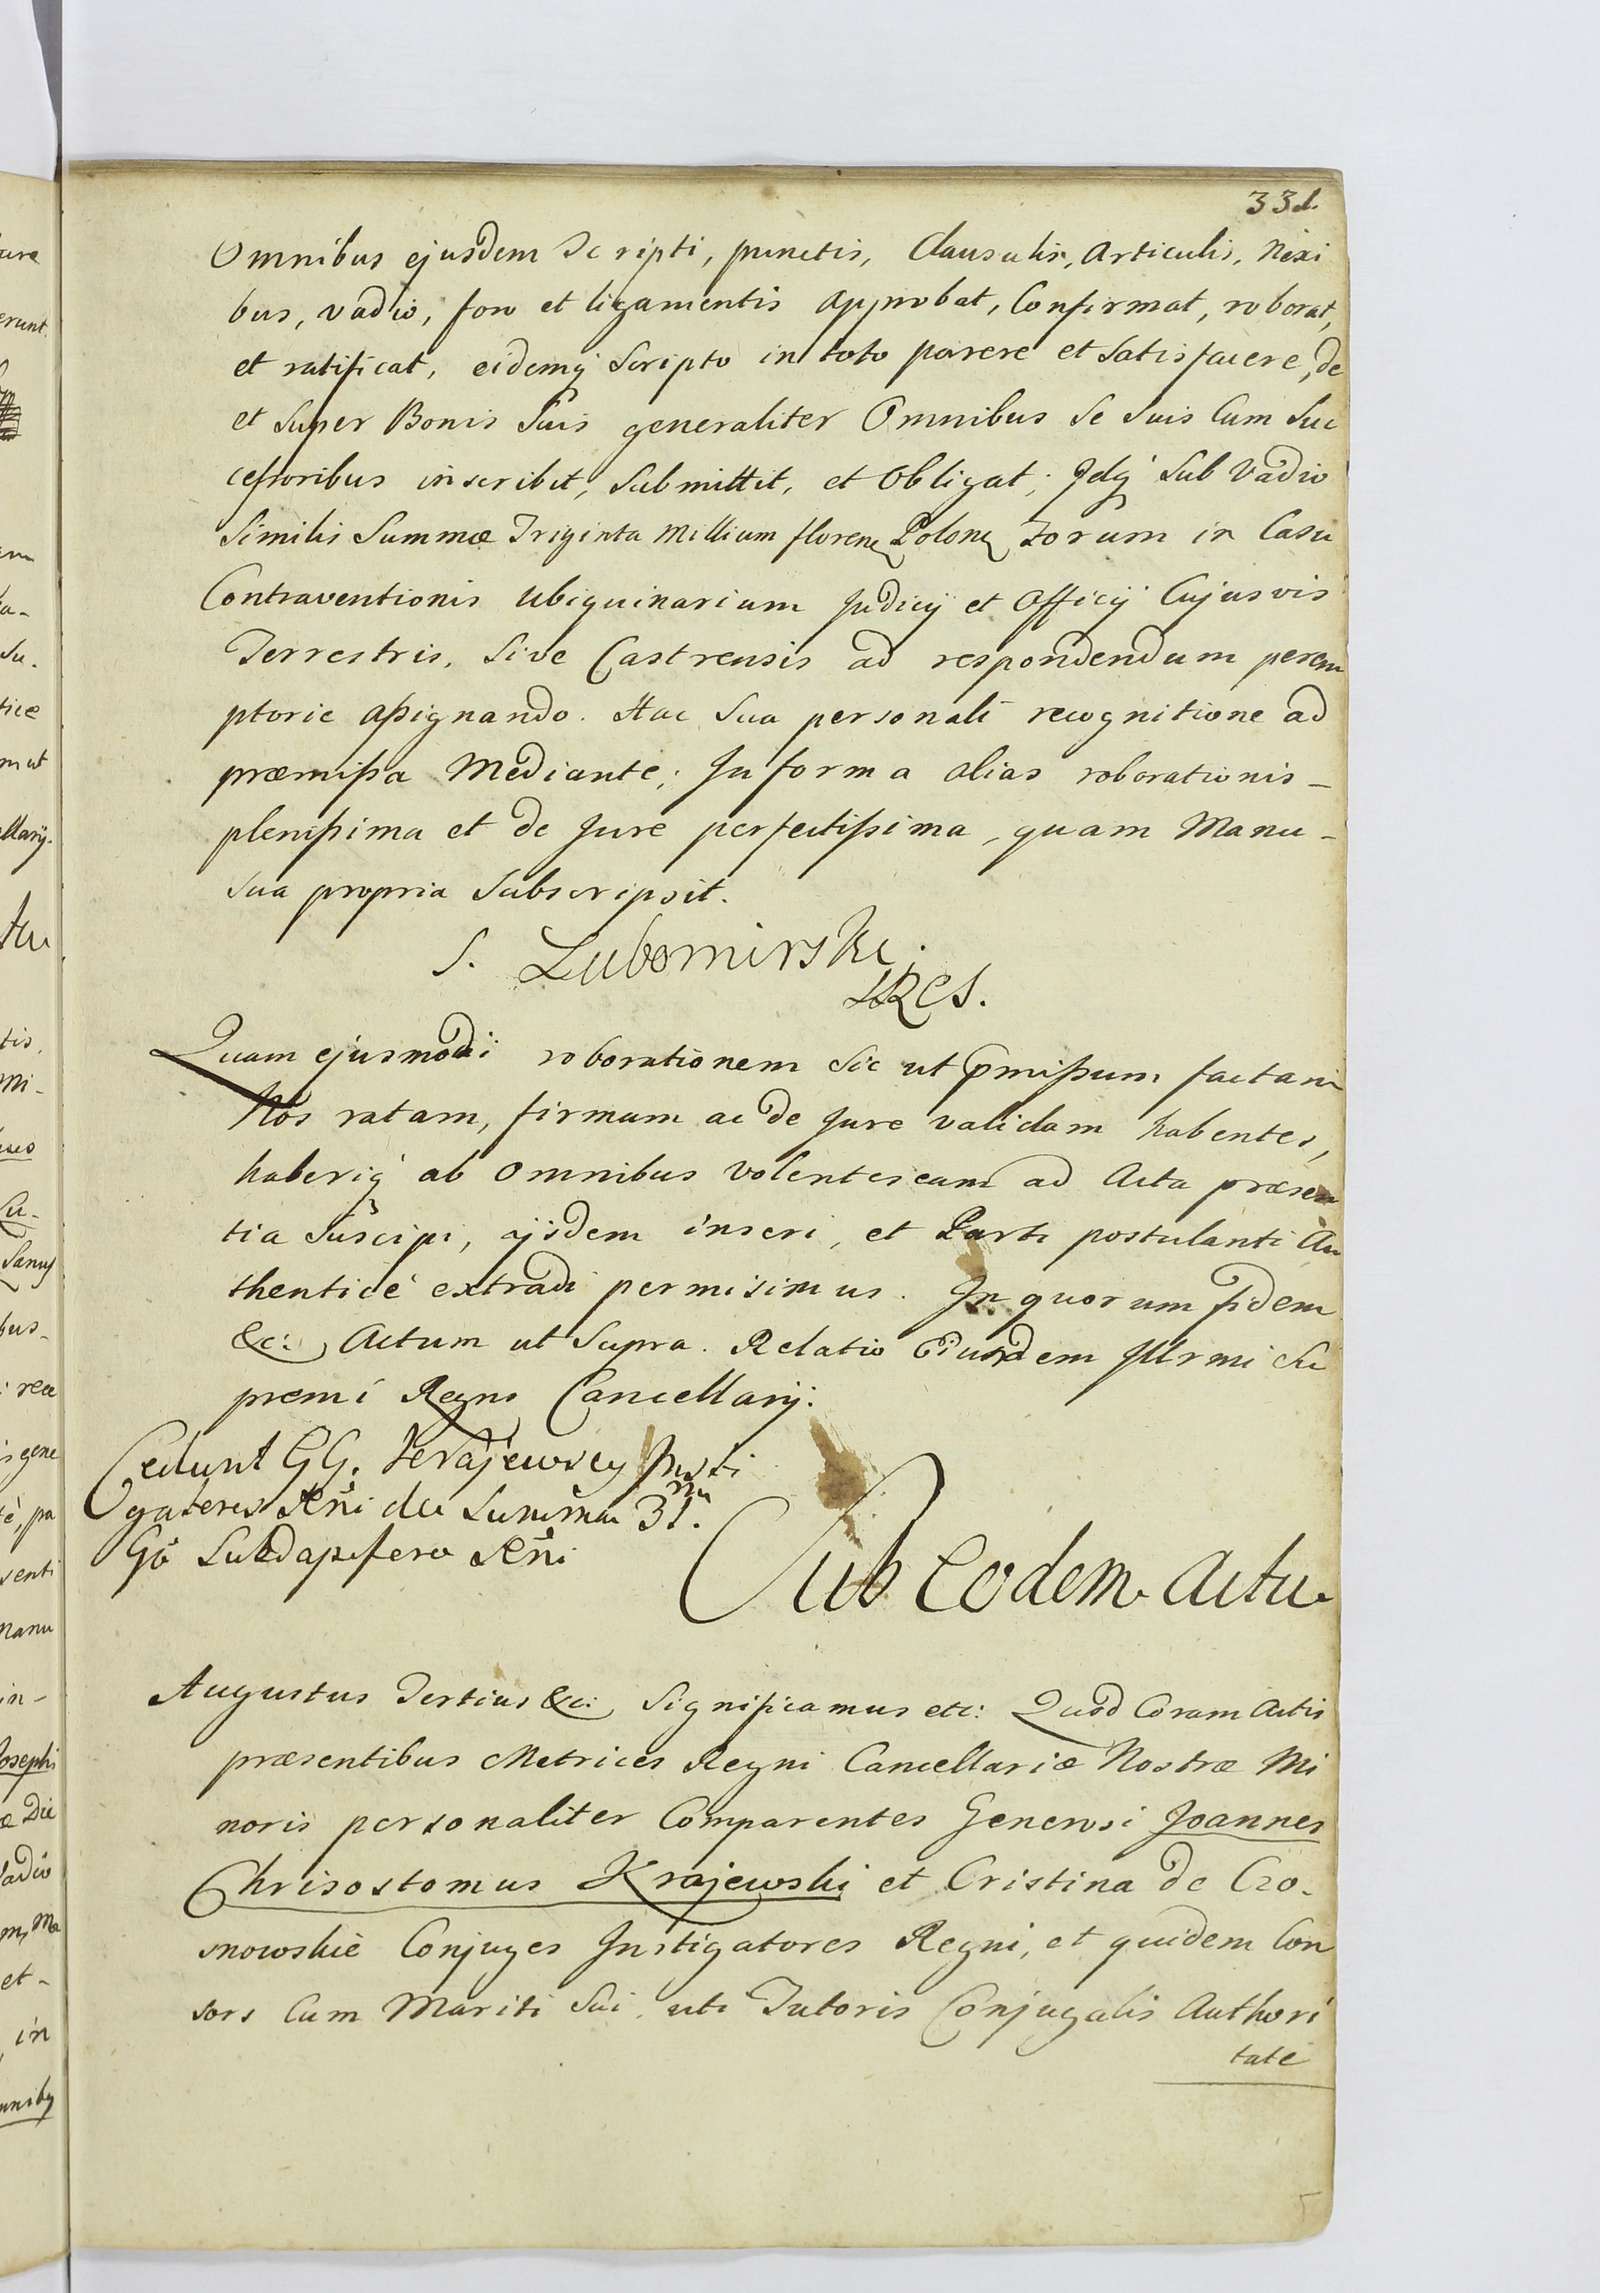 331.
Omnibus ejusdem Scripti, punctis, Clausulis, Articulis, Nexi
bus, vadio, foro et ligamentis approbat, Confirmat, roborat,
et ratificat, eidemq Scripto in toto parere et Satisfacere, de
et Super Bonis Suis generaliter Omnibus Se Suis Cum Suc
cessoribus inscribit, Submittit, et Obligat; Idq Sub Vadio
Similis Summæ Triginta Millium floren Polon Forum in Casu
Contraventionis ubiquinarium Judicij et Officij Cujusvis
Terrestris, Sive Castrensis ad respondendum perem
ptorie assignando. Hac Sua personali recognitione ad
præmissa Mediante; In forma alias roborationis -
plenissima et de Jure perfectissima, quam Manu -
sua propria Subscripsit.
S. Lubomirski.
Quam ejusmodi roborationem Sic ut pmissum factam
Nos ratam, firmam ac de Jure validam habentes,
haberiq ab omnibus volentes eam ad Acta præsen
tia Suscipi, ijsdem inseri, et Parti postulanti Au
thenticè extradi permisimus. In quorum fidem
&c: Actum ut Supra. Relatio Eiusdem Illrmi Su
premi Regni Cancellarij:
Cedunt GG. Krajewscy Insti
gatores Rni de Summa 31.
Gō Subdapifero Rni
Sub Eodem Actu
Augustus Tertius &c: Significamus etc: Quod Coram Actis
præsentibus Metrices Regni Cancellariæ Nostræ Mi
noris personaliter Comparentes Generosi Joannes
Chrisostomus Krajewski et Cristina de Czo-
snowskie Conjuges Instigatores Regni, et quidem Con
sors Cum Mariti Sui uti Tutoris Conjugalis Authori
tate